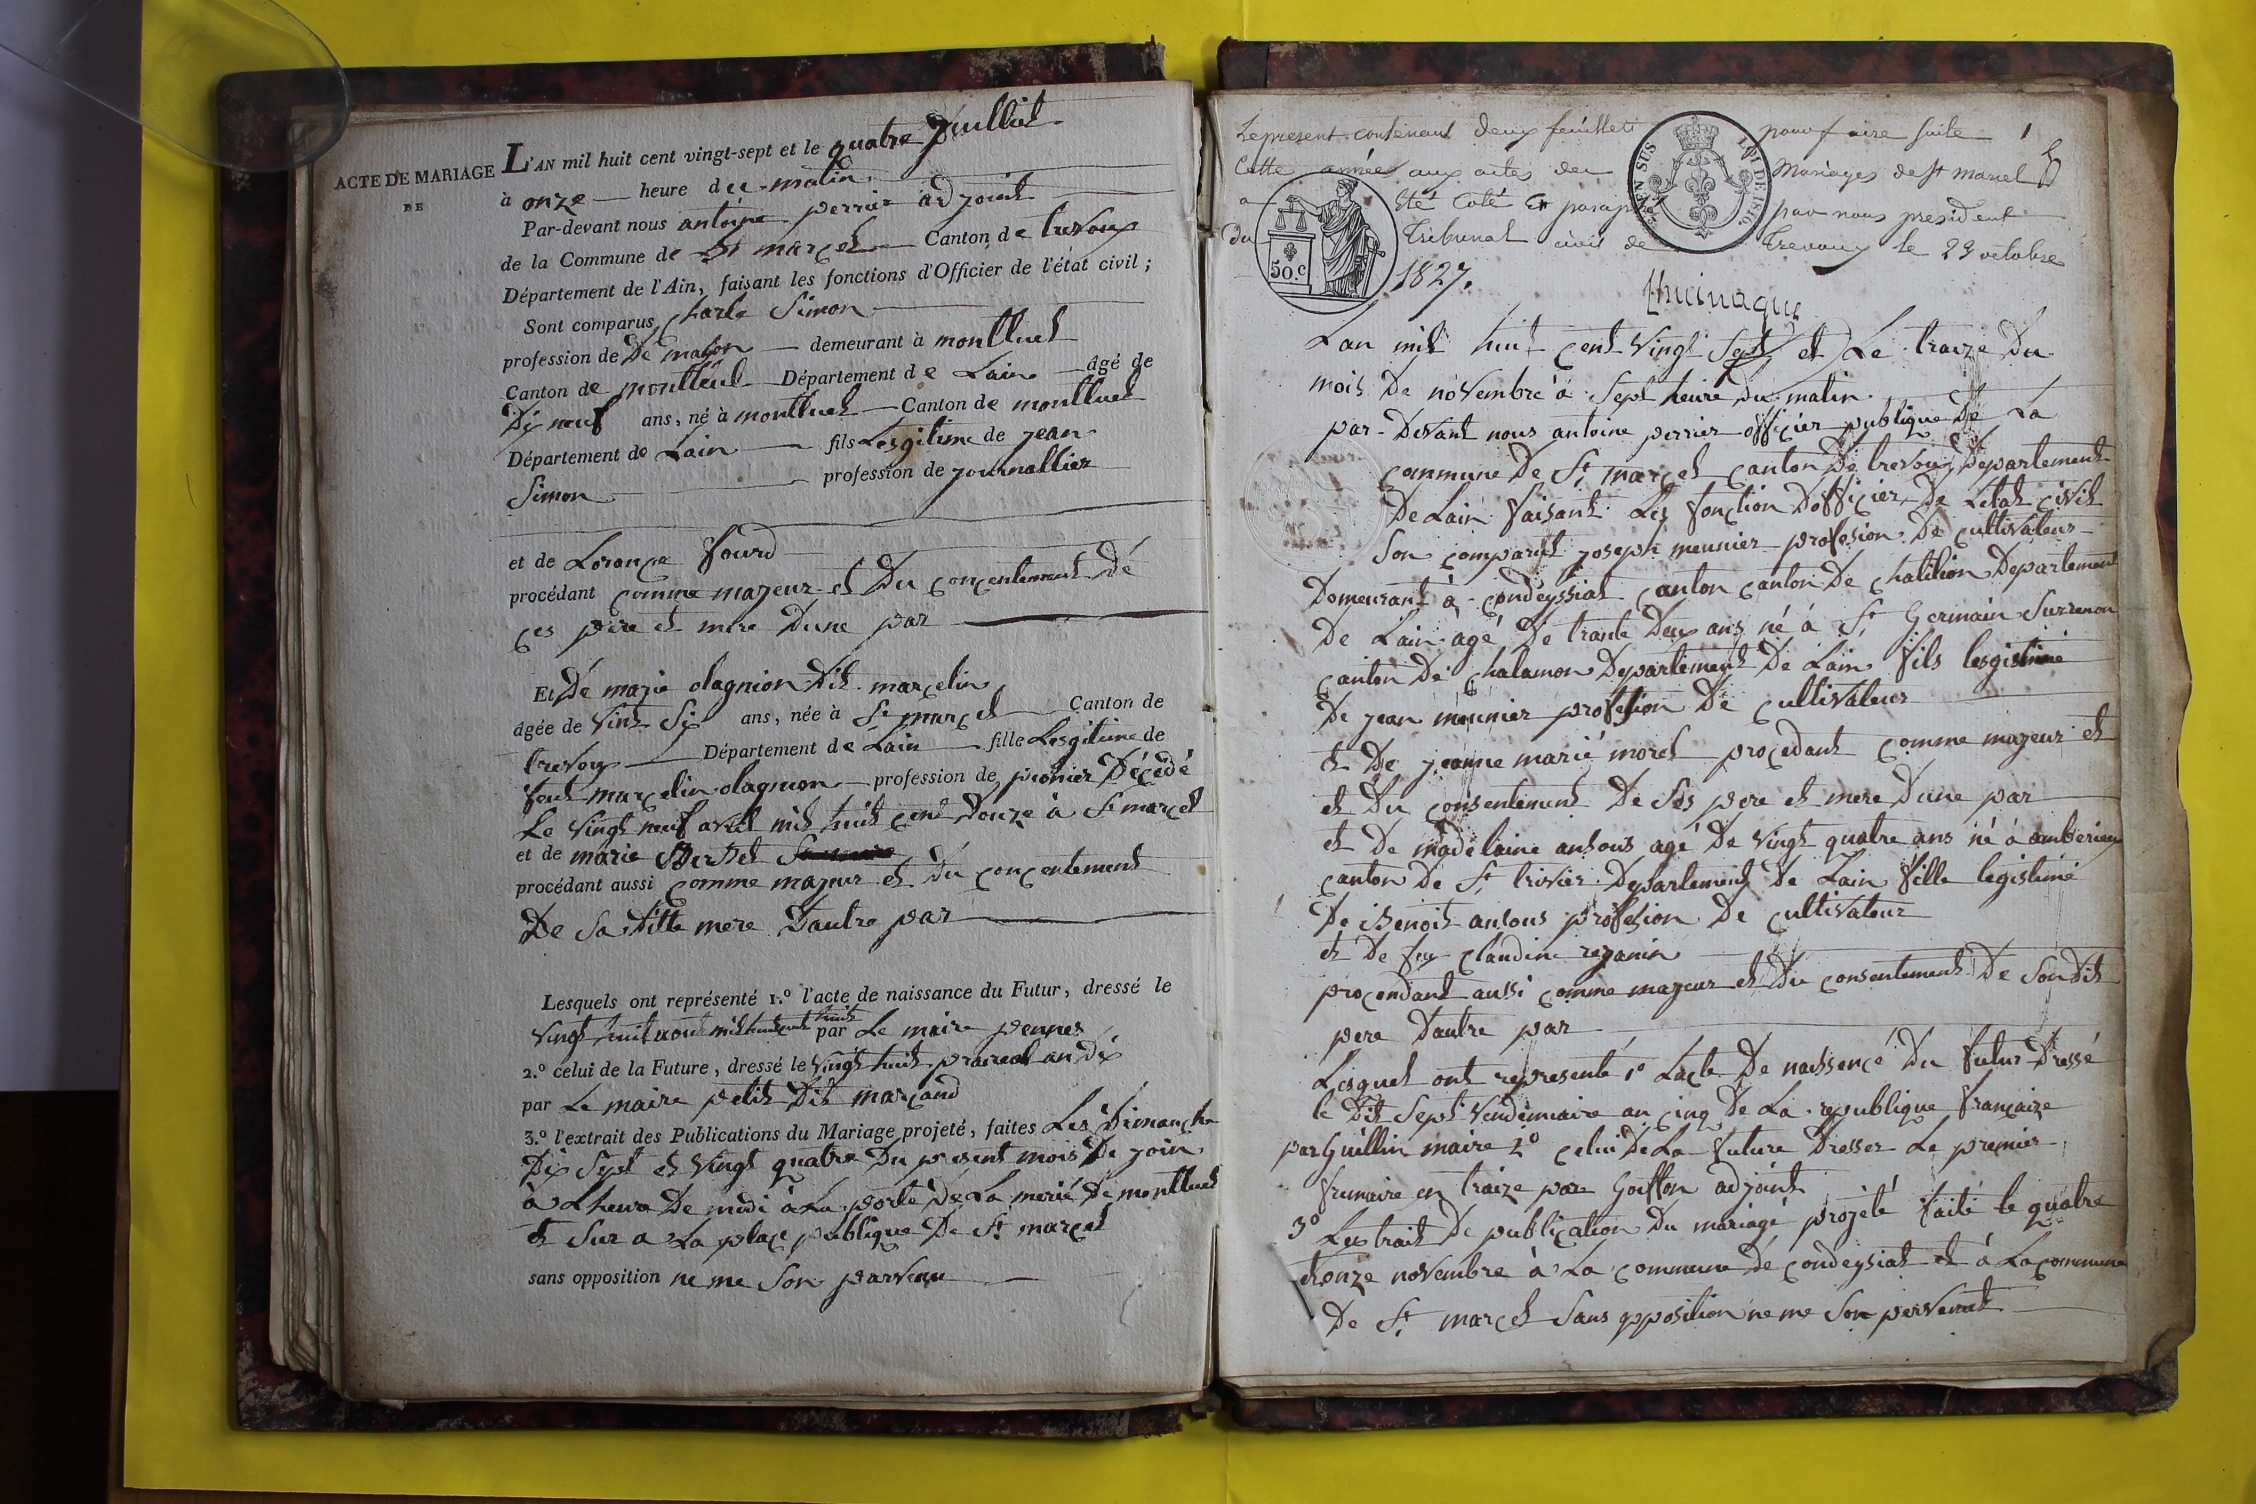 ACTE DE MARIAGE
DE
L'AN mil huit cent vingt-sept et le quatre juilliet
à onze heure du matin
Par-devant nous antoine perrier adjoint
de la Commune de St marcel Canton de trevoux
Département de l'Ain, faisant les fonctions d'Officier de l'état civil ;
Sont comparus charle Simon
profession de De maçon demeurant à montluel
Canton de montluel Département de Lain âgé de
Dix neuf ans, né à montluel Canton de montluel
Département de Lain fils Lesgitime de jean
Simon profession de journallier
et de Loronce fourd
procédant comme majeur et Du concentement De
ces pere et mere Dune par
Et De marie olagnion Dit marcelin
âgée de Vint Six ans, née à St marcel Canton de
trevoux Département de Lain fille Lesgitime de
feut marcelin olagnion profession de pionier Décédé
Le Vingt neuf avril mil huit cent Douze à St marcel
et de marie Berthet
procédant aussi comme majeur et du concentement
De Sa Ditte mere Dautre par
Lesquels ont représenté 1.º l'acte de naissance du Futur, dressé le
Vingt huit aout mil huit cent huit par Le maire pennes
2.º celui de la Future, dressé le Vingt huit prairial an Dix
par Le maire petit Dit marçand
3.º l'extrait des Publications du Mariage projeté, faites Les Dimanche
Dix Sept et Vingt quatre Du present mois De join
à Lheure De midi à La porte De La merié De montluel
et Sur a La place publique De St marcel
sans opposition ne me Son parvenu
Le present contenant deux feuillets pour faire suite 1
Cette année aux actes de Mariages de St marcel
a été coté et paraphé par nous president
du Tribunal civil de Trevoux le 23 octobre
1827.
TIMBRE EN SUS LOI DE 1816.
50.c
Lan mil huit cent Vingt Sept et Le traize Du
mois De novembre à Sept heure du matin
par-Devant nous antoine perrier officier publique De La
commune De St marcel canton De trevoux Departement
De Lain faisant Les fonction Dofficier De Letat civil
Son comparut joseph meunier profesion De cultivateur
Domeurant à condeyssiat canton canton De chatilion Departement
De Lain agé De trante Deux ans né à St Germain Surrenon
canton De chalamon Departement De Lain fils lesgistime
De jean meunier profesion De cultivateur
et De jeanne marié morel procedant comme majeur et
et Du consentement De Ses pere et mere Dune par
et De madelaine ansous agé De Vingt quatre ans né à amberieux
canton De St trivier Departement De Lain fille legistime
De Benoit ansous profesion De cultivateur
et De feu claudine rejanin
procendant aussi comme majeur et Du consentement De Son Dit
pere Dautre par
Lesquel ont representé 1º Lacte De naissence Du futur Dressé
le Dit Sept Vendemiaire an cinq De La republique françaize
par Guillin maire 2º celui De La future Dresser Le premier
frimaire en traize par Goiffon adjoint
3º Lextrait De publication Du mariagé projeté faité le quatre
et onze novembre à La commune de condeysiat et à La commune
De St marcel Sans opposition ne me Son pervenut